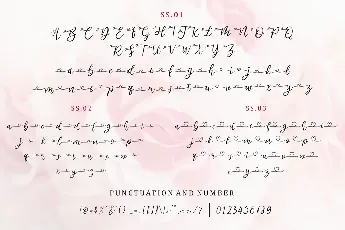 SS.01
A B C D E F G H I J K L M N O P Q
R S T U V W X Y Z
a b c d e f g h i j k l
m n o p q r s t u v w x y z
SS.02
SS.03
a b c d e f g h i
a b c d e f g h i
j k l m n o p
j k l m n o p
q r s t u v w
q r s t u v w
x y z
x y z
PUNCTUATION AND NUMBER
0123456789